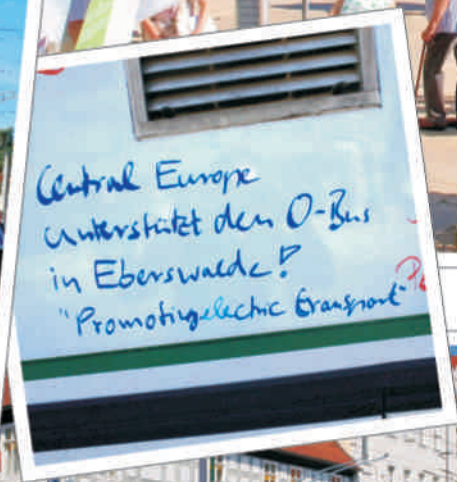 Central Europe
unterstützt den O-Bus
in Eberswalde!
"Promoting electric transport"